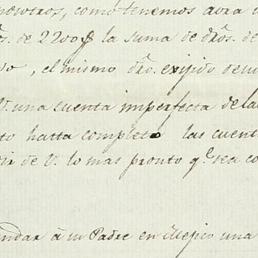 nosotros, como tenemos aora
de 2200$ la suma de dros. de
, el mismo dro. exijido de
V. una cuenta imperfecta de la
to hatta completo las cuent
de V. lo mas pronto q.e sea co
ndar á su Padre en Mejico una